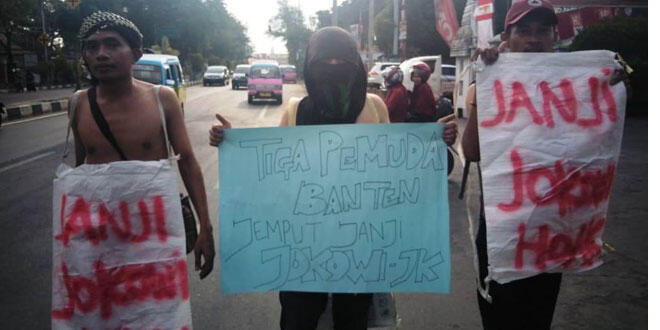 JANJI
JOKOWI
TIGA PEMUDA
BANTEN
JEMPUT JANJI
JOKOWI-JK
JANJI
JOKOWI